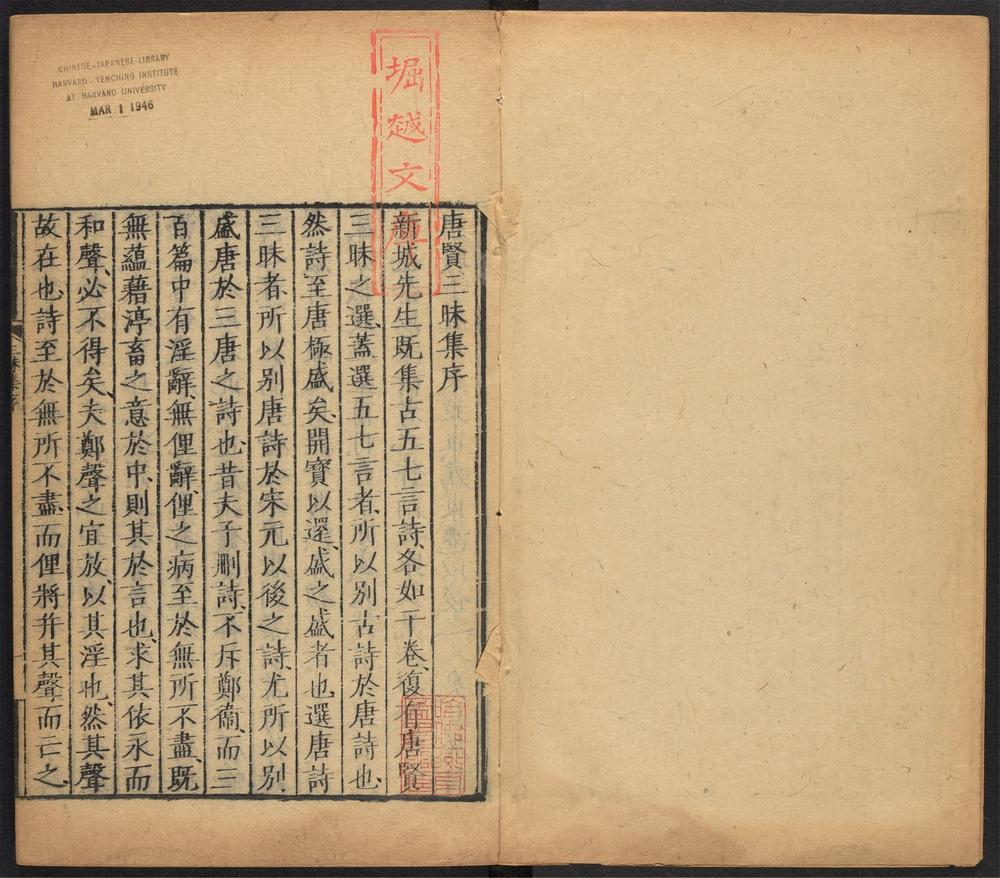 CHINESE-JAPANESE LIBRARY
HARVARD-YENCHING INSTITUTE
AT HARVARD UNIVERSITY
MAR 1 1946
堀越文庫
唐賢三昧集序
新城先生既集古五七言詩、各如干卷、復有唐賢
三昧之選、蓋選五七言者、所以別古詩於唐詩也、
然詩至唐極盛矣、開寶以還、盛之盛者也、選唐詩
三昧者、所以別唐詩於宋元以後之詩、尤所以別
盛唐於三唐之詩也、昔夫子刪詩、不斥鄭衞、而三
百篇中有淫辭、無俚辭、俚之病至於無所不盡、既
無蘊藉渟畜之意於中、則其於言也、求其依永而
和聲、必不得矣、夫鄭聲之宜放、以其淫也、然其聲
故在也、詩至於無所不盡、而俚將并其聲而亡之、
三昧集序